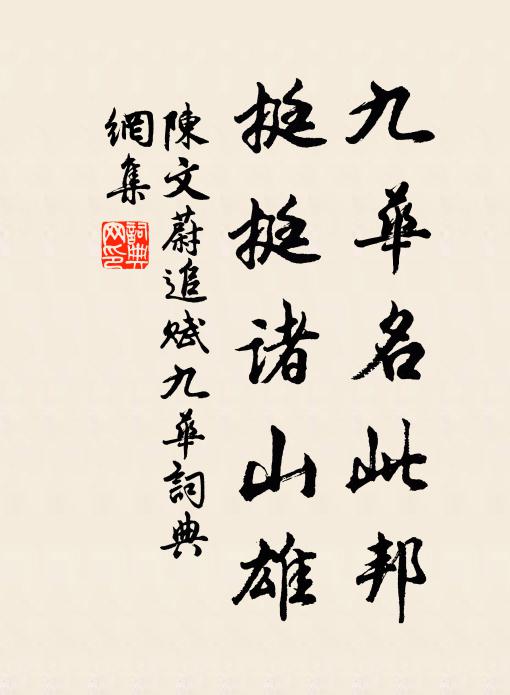 九華名此邦
挺挺诸山雄
陳文蔚追赋九華詞典
網集
詞典网印